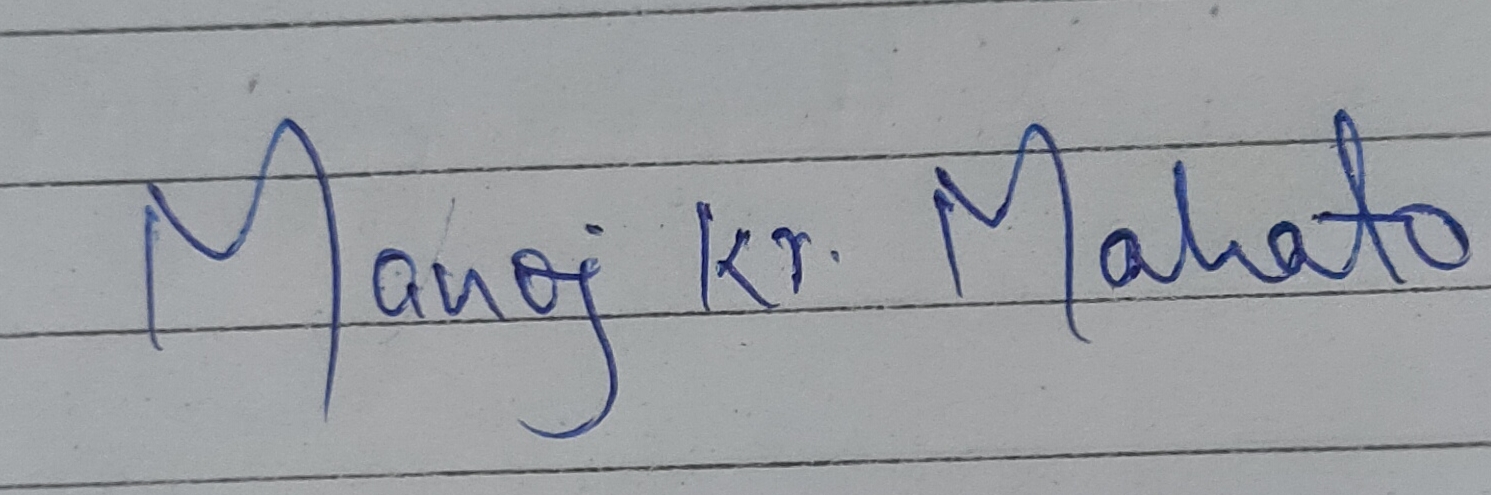 Manoj Kr. Mahato